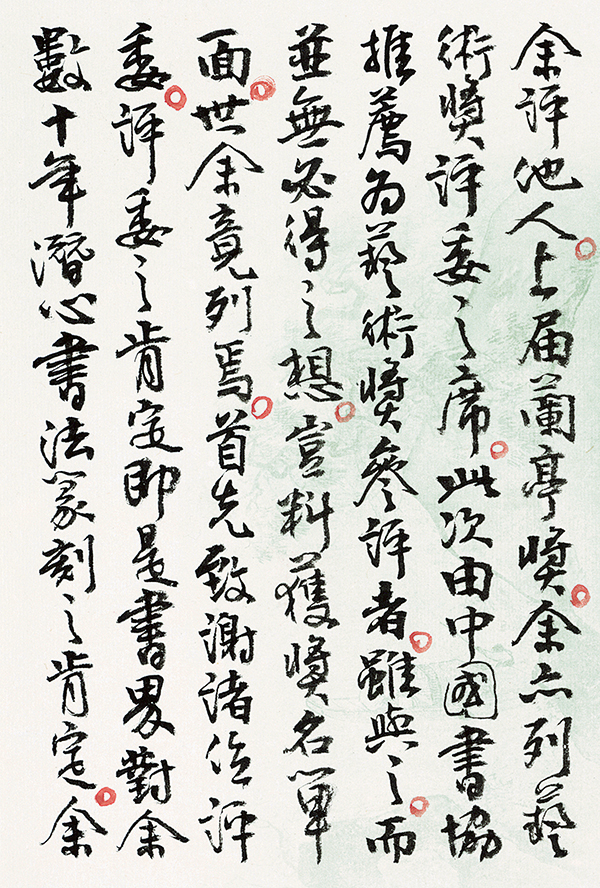 余評他人上届蘭亭奬余亦列藝
術奬評委之席此次由中國書協
推薦为藝術奬參評者雖與之而
並無必得之想豈料獲奬名單
面世余竟列焉首先致謝諸位評
委評委之肯定即是書界對余
數十年潛心書法篆刻之肯定余